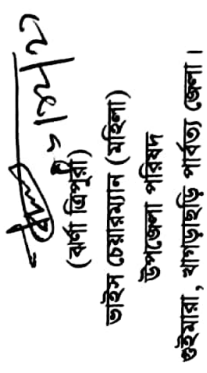 (ঝর্ণা ত্রিপুরা)
ভাইস চেয়ারম্যান (মহিলা)
উপজেলা পরিষদ
গুইমারা, খাগড়াছড়ি পার্বত্য জেলা।